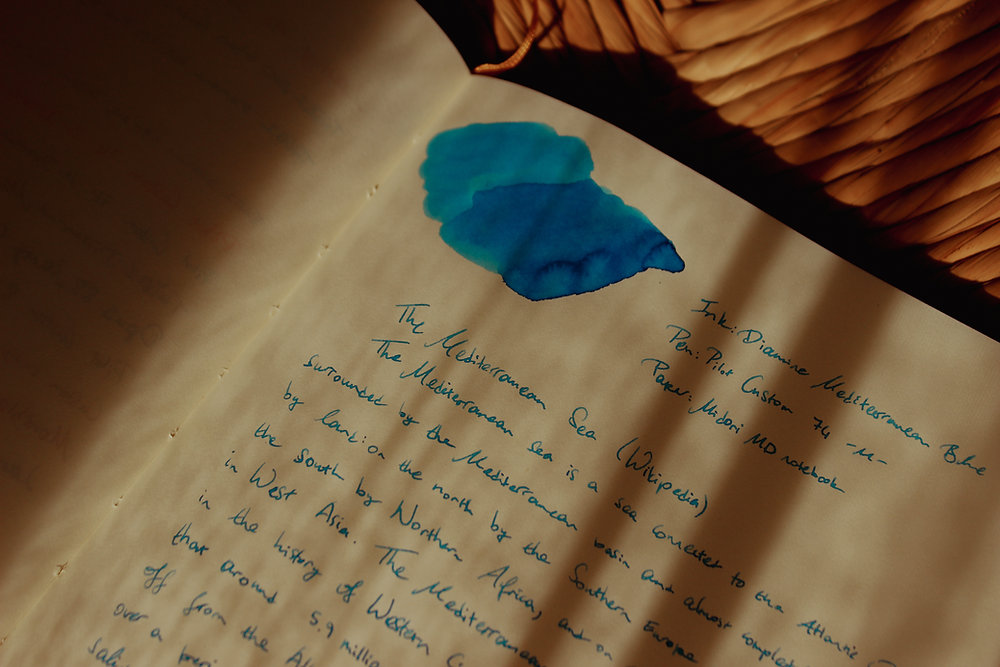 Ink: Diamine Mediterranean Blue
Pen: Pilot Custom 74 -M-
Paper: Midori MD notebook
The Mediterranean Sea (Wikipedia)
The Mediterranean sea is a sea conected to the Atlantic
surrounded by the Mediterranean basin and almost comple
by land: on the north by the Southern Europe
the south by Northern Africa, and on
in West Asia. The Mediterranean
in the history of Western
that around 5.9 millio
off from the
over a peri